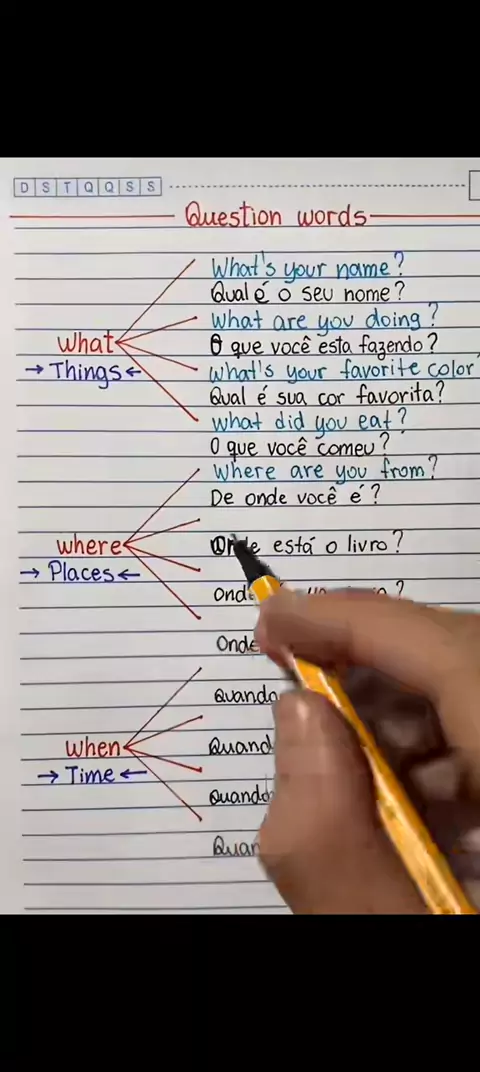 D S T Q Q S S
Question words
What's your name?
Qual é o seu nome?
What are you doing?
what
O que você esta fazendo?
→ Things ←
What's your favorite color
Qual é sua cor favorita?
What did you eat?
O que você comeu?
Where are you from?
De onde você é?
where
Onde está o livro?
→ Places ←
Onde
Quando
when
→ Time ←